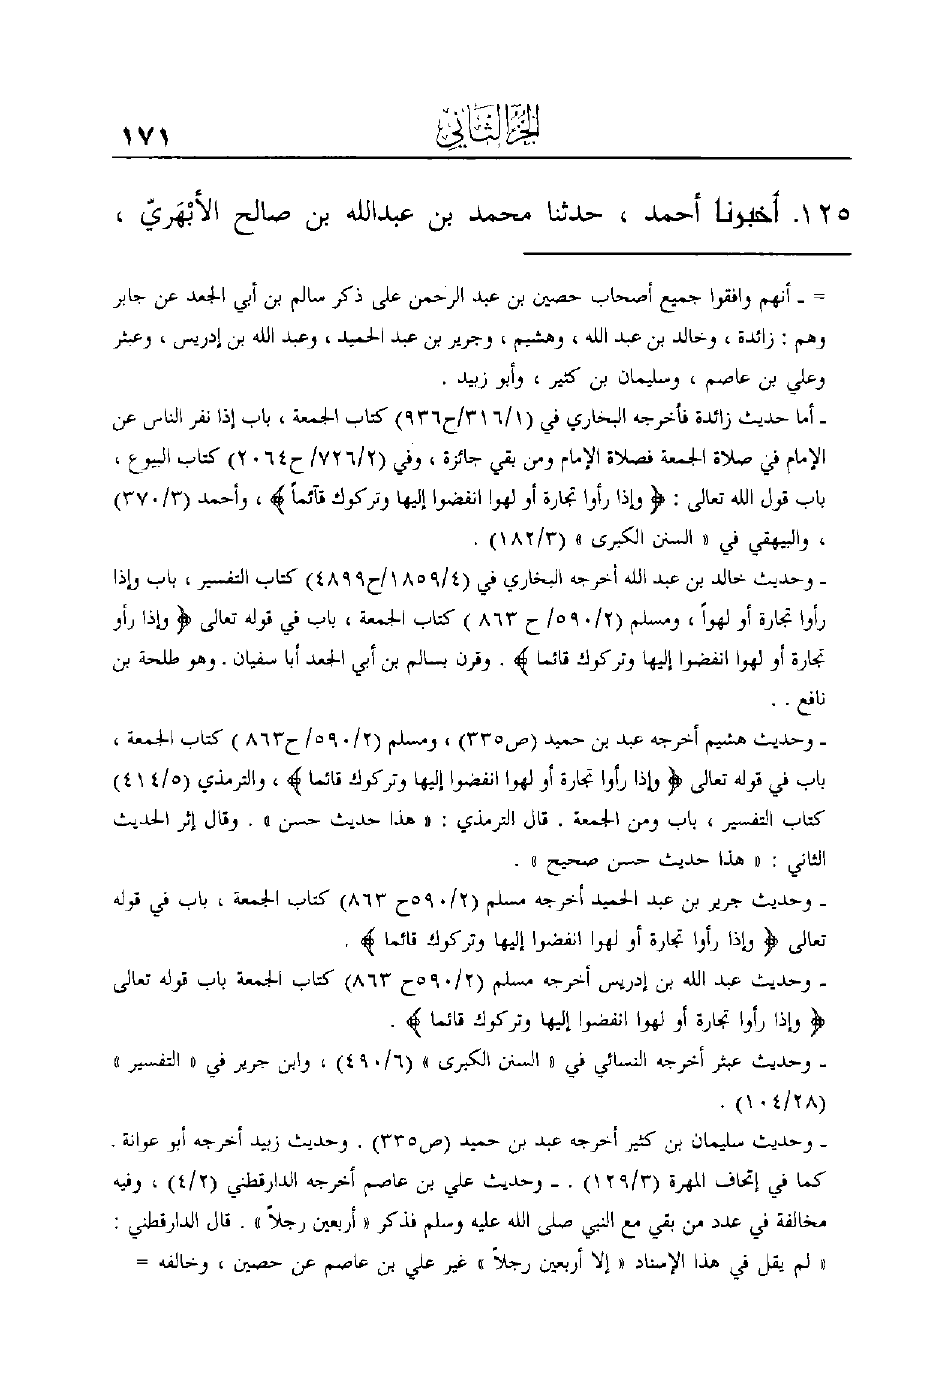 الجزء الثاني
١٧١
١٢٥. أخبرنا أحمد ، حدثنا محمد بن عبدالله بن صالح الأبْهَريّ ،
= ـ أنهم وافقوا جميع أصحاب حصين بن عبد الرحمن على ذكر سالم بن أبي الجعد عن جابر
وهم : زائدة ، وخالد بن عبد الله ، وهشيم ، وجرير بن عبد الحميد ، وعبد الله بن إدريس ، وعبثر
وعلي بن عاصم ، وسليمان بن كثير ، وأبو زبيد .
ـ أما حديث زائدة فأخرجه البخاري في (٣١٦/١/ح٩٣٦) كتاب الجمعة ، باب إذا نفر الناس عن
الإمام في صلاة الجمعة فصلاة الإمام ومن بقي جائزة ، وفي (٧٢٦/٢/ ح٢٠٦٤) كتاب البيوع ،
باب قول الله تعالى : ﴿ وإذا رأوا تجارة أو لهوا انفضوا إليها وتركوك قآئماً ﴾ ، وأحمد (٣٧٠/٣)
، والبيهقي في « السنن الكبرى » (١٨٢/٣) .
ـ وحديث خالد بن عبد الله أخرجه البخاري في (١٨٥٩/٤/ح٤٨٩٩) كتاب التفسير ، باب وإذا
رأوا تجارة أو لهواً ، ومسلم (٥٩٠/٢/ ح ٨٦٣ ) كتاب الجمعة ، باب في قوله تعالى ﴿ وإذا رأو
تجارة أو لهوا انفضوا إليها وتركوك قائما ﴾ . وقرن بسالم بن أبي الجعد أبا سفيان . وهو طلحة بن
نافع . .
ـ وحديث هشيم أخرجه عبد بن حميد (ص٣٣٥) ، ومسلم (٥٩٠/٢/ ح٨٦٣ ) كتاب الجمعة ،
باب في قوله تعالى ﴿ وإذا رأوا تجارة أو لهوا انفضوا إليها وتركوك قائما ﴾ ، والترمذي (٤١٤/٥)
كتاب التفسير ، باب ومن الجمعة . قال الترمذي : « هذا حديث حسن » . وقال إثر الحديث
الثاني : « هذا حديث حسن صحيح » .
ـ وحديث جرير بن عبد الحميد أخرجه مسلم (٥٩٠/٢ح ٨٦٣) كتاب الجمعة ، باب في قوله
تعالى ﴿ وإذا رأوا تجارة أو لهوا انفضوا إليها وتركوك قائما ﴾ .
ـ وحديث عبد الله بن إدريس أخرجه مسلم (٥٩٠/٢ح ٨٦٣) كتاب الجمعة باب قوله تعالى
﴿ وإذا رأوا تجارة أو لهوا انفضوا إليها وتركوك قائما ﴾ .
ـ وحديث عبثر أخرجه النسائي في « السنن الكبرى » (٤٩٠/٦) ، وابن جرير في « التفسير »
(١٠٤/٢٨) .
ـ وحديث سليمان بن كثير أخرجه عبد بن حميد (ص٣٣٥) . وحديث زبيد أخرجه أبو عوانة .
كما في إتحاف المهرة (١٢٩/٣) . ـ وحديث علي بن عاصم أخرجه الدارقطني (٤/٢) ، وفيه
مخالفة في عدد من بقي مع النبي صلى الله عليه وسلم فذكر « أربعين رجلاً » . قال الدارقطني :
« لم يقل في هذا الإسناد « إلا أربعين رجلاً » غير علي بن عاصم عن حصين ، وخالفه =